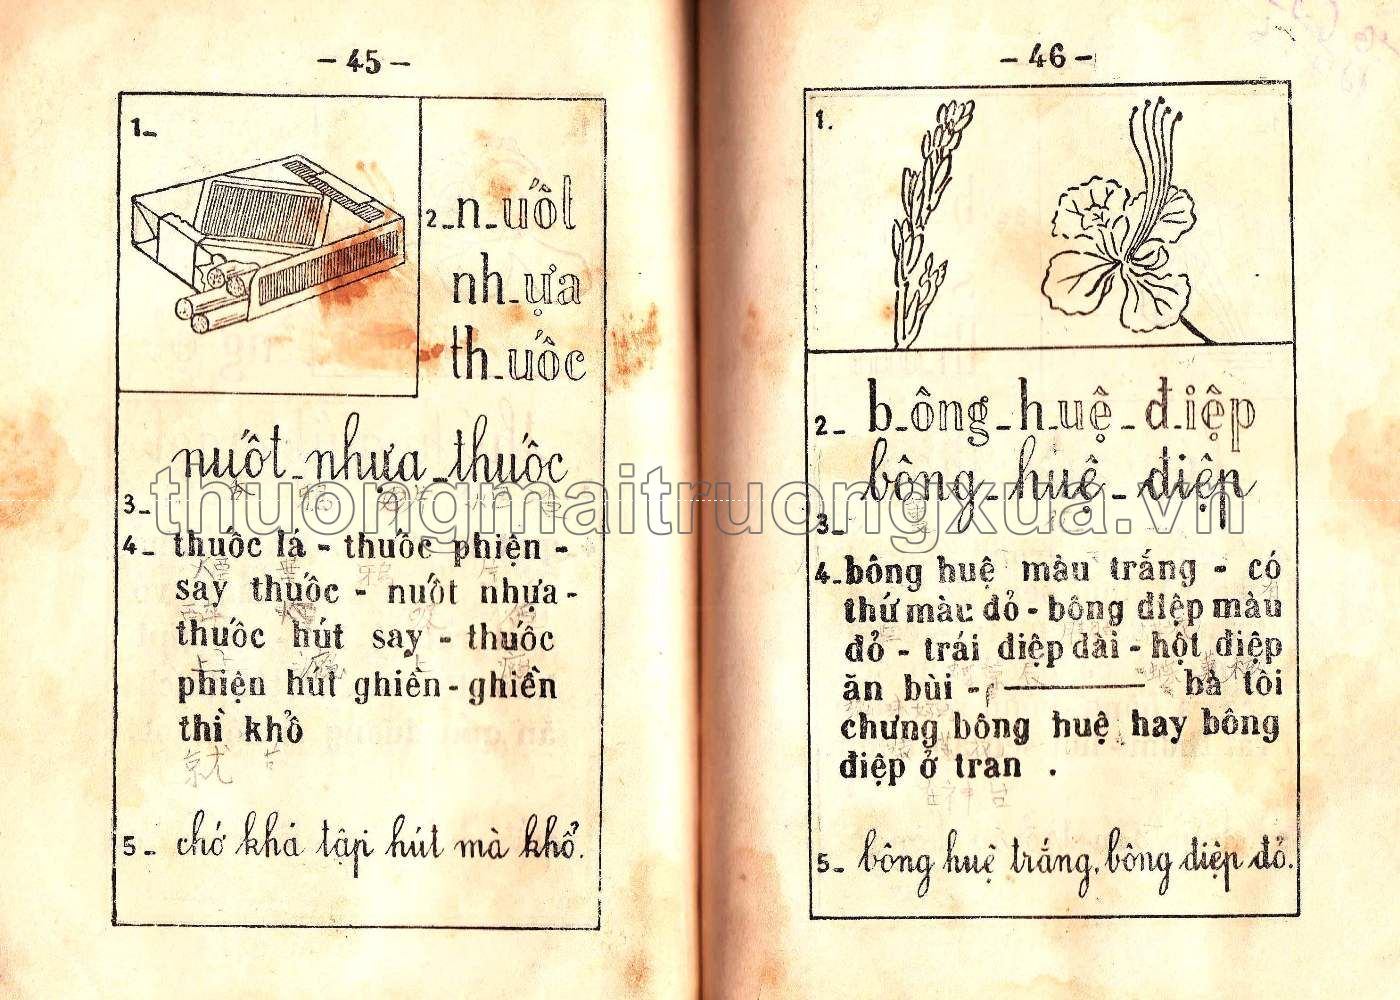 - 45 -
1_
2_n_uốt
nh_ựa
th_uốc
nuốt_nhựa_thuốc
3_
4_ thuốc lá - thuốc phiện -
say thuốc - nuốt nhựa -
thuốc hút say - thuốc
phiện hút ghiền - ghiền
thì khổ
就 苦
5_ chớ khá tập hút mà khổ.
- 46 -
1.
2_ b_ông_h_uệ_đ_iệp
bông_huệ_điệp
3_
4_bông huệ màu trắng - có
thứ màu đỏ - bông điệp màu
đỏ - trái điệp dài - hột điệp
ăn bùi - ——— bà tôi
chưng bông huệ hay bông
điệp ở tran .
在神台
5_ bông huệ trắng, bông điệp đỏ.
thuongmaitruongxua.vn